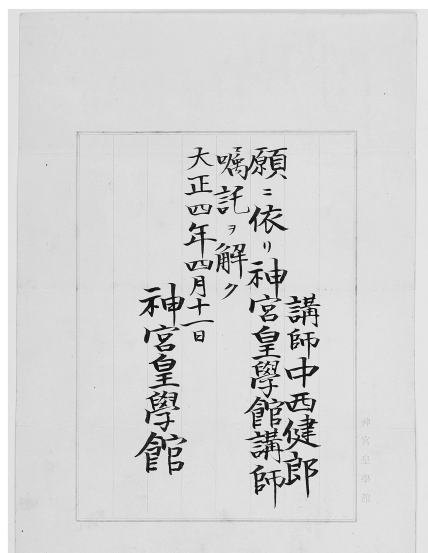 講師中西健郎
願ニ依リ神宮皇學館講師
嘱託ヲ解ク
大正四年四月十一日
神宮皇學館
神宮皇學館